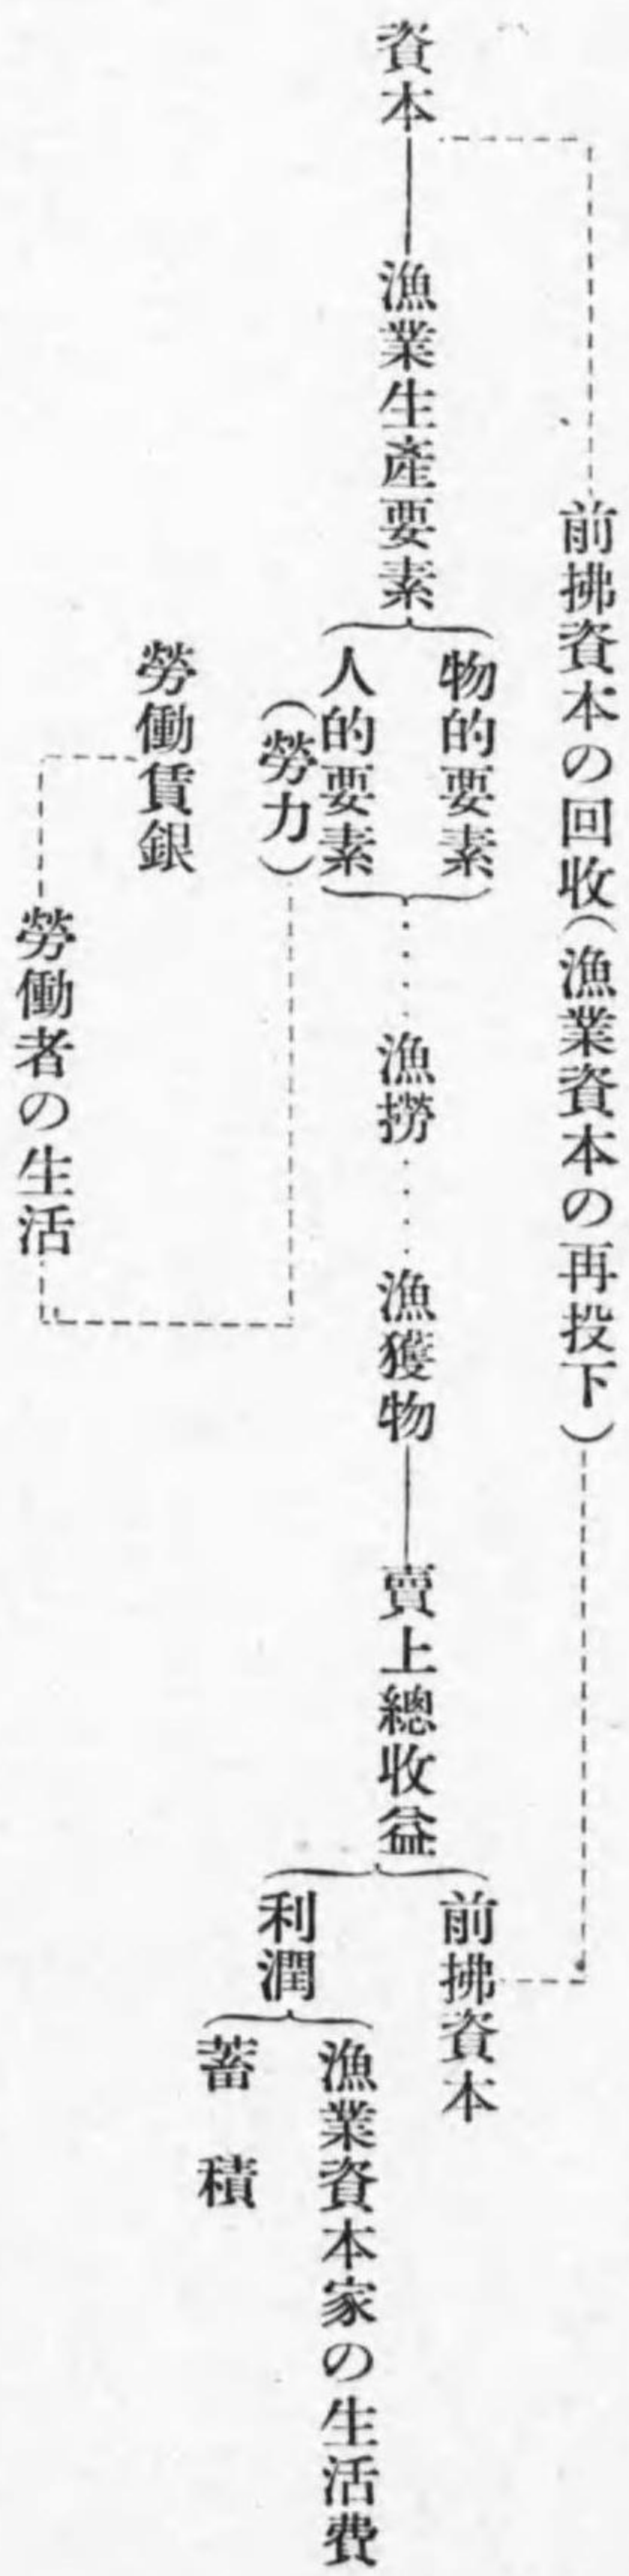 前拂資本の回收(漁業資本の再投下)
資本
漁業生產要素
物的要素
人的要素
(勞力)
漁撈
漁獲物
賣上總收益
前拂資本
利潤
漁業資本家の生活費
蓄積
勞働賃銀
勞働者の生活